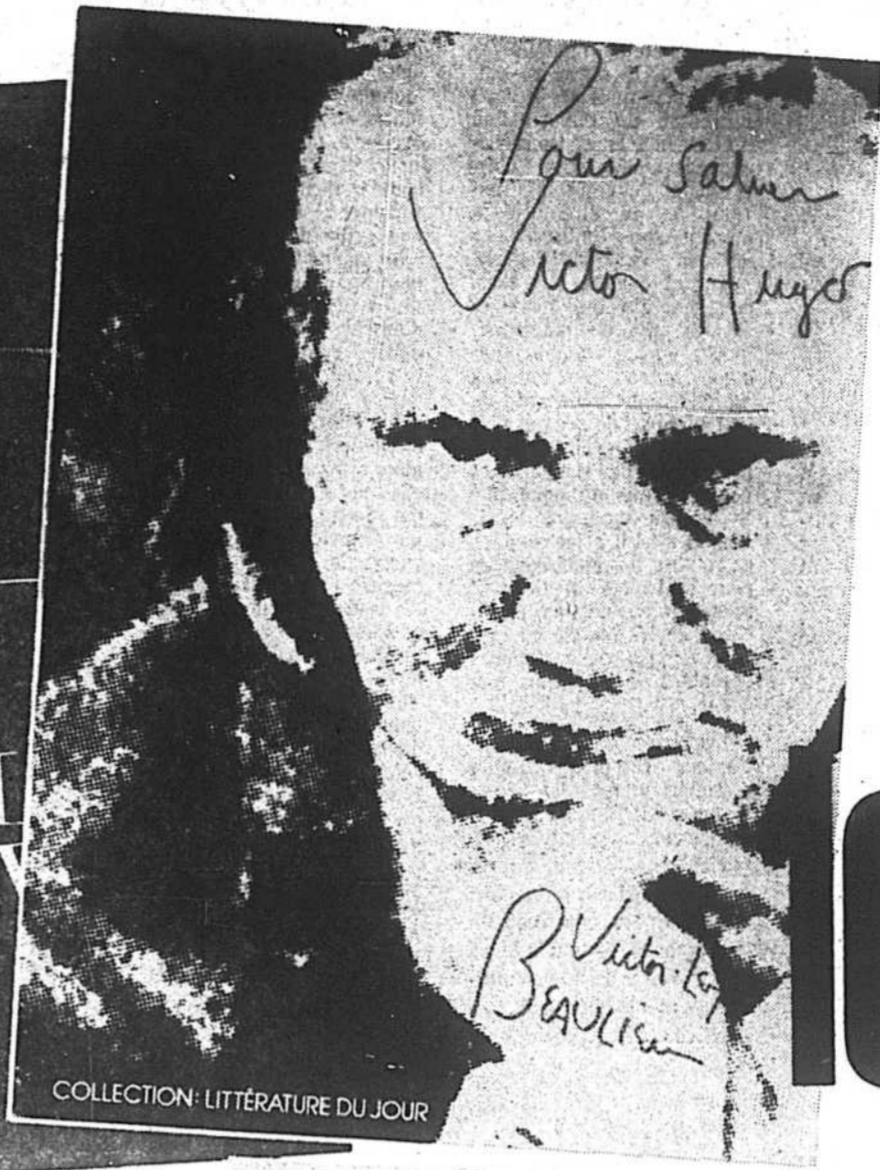 Pour saluer
Victor Hugo
Victor-Lévy
BEAULIEU
COLLECTION: LITTÉRATURE DU JOUR